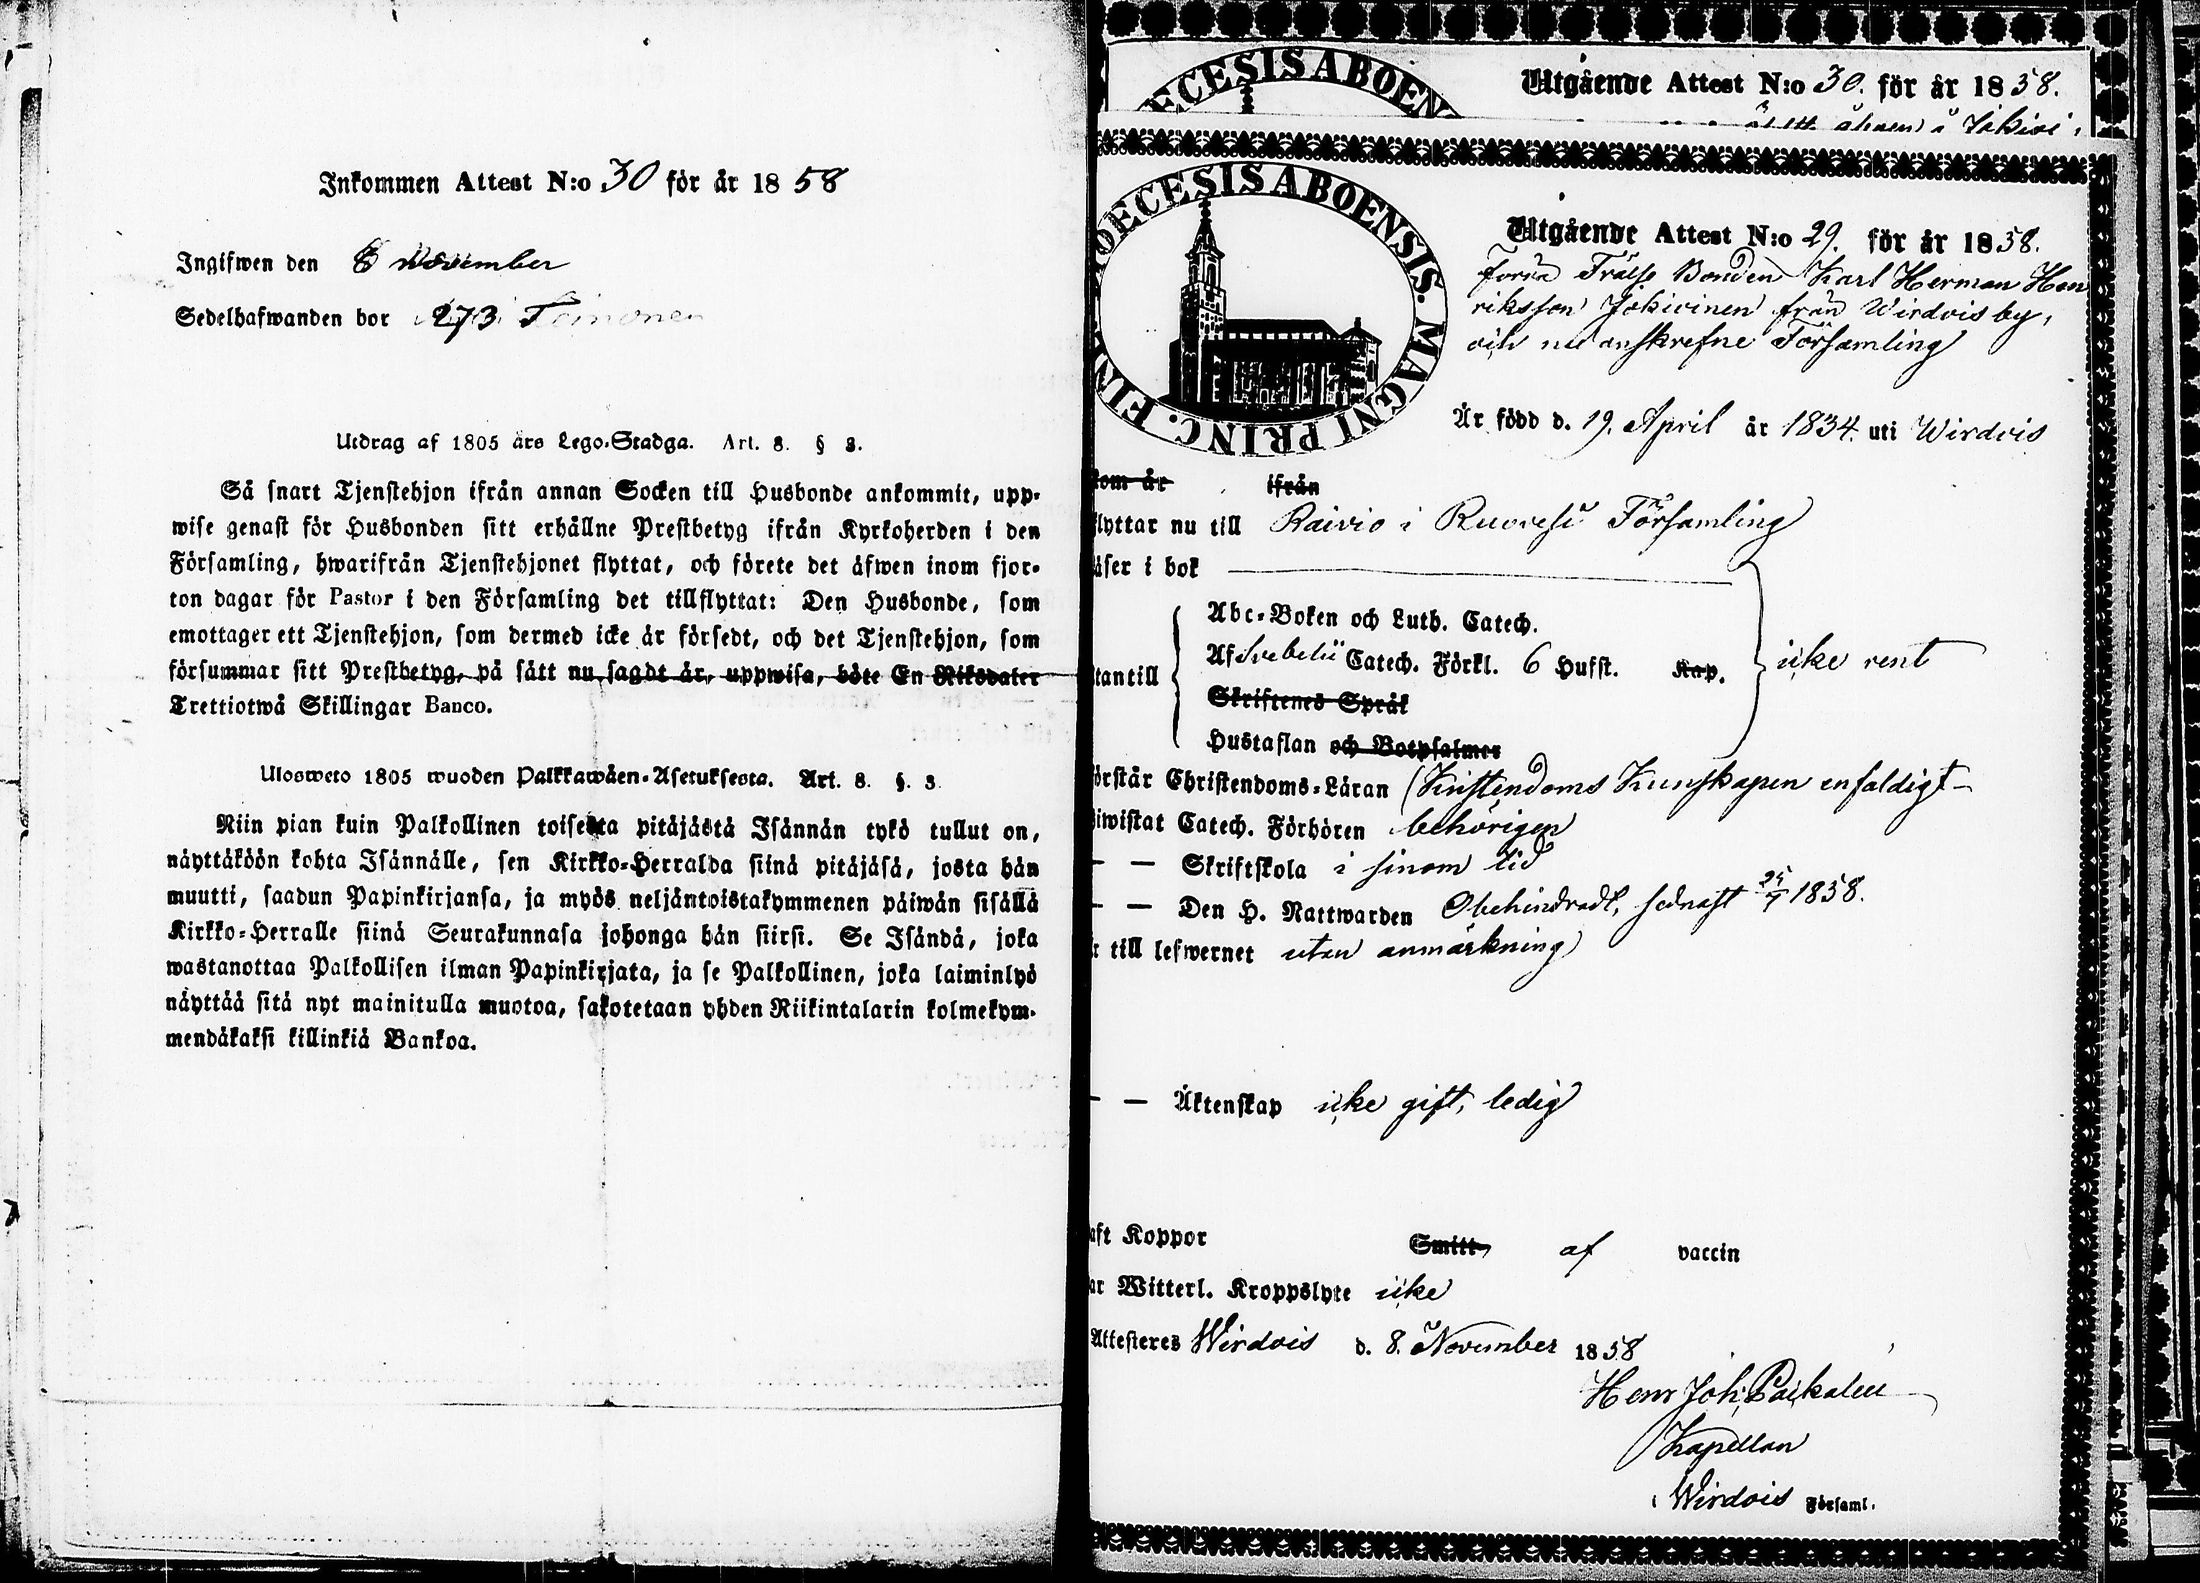 Inkommen Attest N:o 30 för år 1858
Ingifwen den 8 November
Sedelhafwanden bor 273
Utdrag af 1805 års Lego-Stadga. Art. 8. § 3.
Så snart Tjenstehjon ifrån annan Socken till Husbonde ankommit, upp-
wise genast för Husbonden sitt erhållne Prestbetyg ifrån Kyrkoherden i den
Församling, hwarifrån Tjenstehjonet flyttat, och förete det äfwen inom fjor-
ton dagar för Pastor i den Församling det tillflyttat: Den Husbonde, som
emottager ett Tjenstehjon, som dermed icke är försedt, och det Tjenstehjon, som
försummar sitt Prestbetyg, på sätt nu sagdt är, uppwisa, böte En Riksdaler
Trettiotwå Skillingar Banco.
Ulosweto 1805 wuoden Palkkawäen-Asetuksesta. Art. 8. §. 3.
Niin pian kuin Palkollinen toisesta pitäjästä Isännän tykö tullut on,
näyttäköön kohta Isännälle, sen Kirkko-Herralda siinä pitäjäsä, josta hän
muutti, saadun Papinkirjansa, ja myös neljäntoistakymmenen päiwän sisällä
Kirkko-Herralle siinä Seurakunnasa johonga hän siirsi. Se Isändä, joka
wastanottaa Palkollisen ilman Papinkirjata, ja se Palkollinen, joka laiminlyö
näyttää sitä nyt mainitulla muotoa, sakotetaan yhden Riikintalarin kolmekym-
mendäkaksi killinkiä Bankoa.
ECESIS ABOEN
Utgående Attest N:o 30. för år 1858.
DIOECESIS ABOENSIS. MAGNI PRINC. FINL
Utgående Attest N:o 29. för år 1858.
förra Frälse Bonden Karl Herman Hen
riksson Jokivinen från Wirdois by,
och nedanskrefne Församling
Är född d. 19. April år 1834. uti Wirdois
kom år ifrån
flyttar nu till Raivio i Ruovesi Församling
läser i bok
utantill
Abc-Boken och Luth. Catech.
Af Svebelii Catech. Förkl. 6 Hufst. Kap.
icke rent
Skriftenes Språk
Hustaflan och Botpsalmer
förstår Christendoms-Läran (Kristendoms Kunskapen enfaldigt
biwistat Catech. Förhören behörigen
— — Skriftskola i sinom tid
— — Den H. Nattwarden Obehindradt, sednast 25/7 1858.
är till lefwernet utan anmärkning
— — Äktenskap icke gift, ledig
haft Koppor Smitt- af vaccin
har Witterl. Kroppslyte icke
Attesteres Wirdois d. 8. November 1858
Henr Joh Paikalén
Kapellan
i Wirdois Församl.